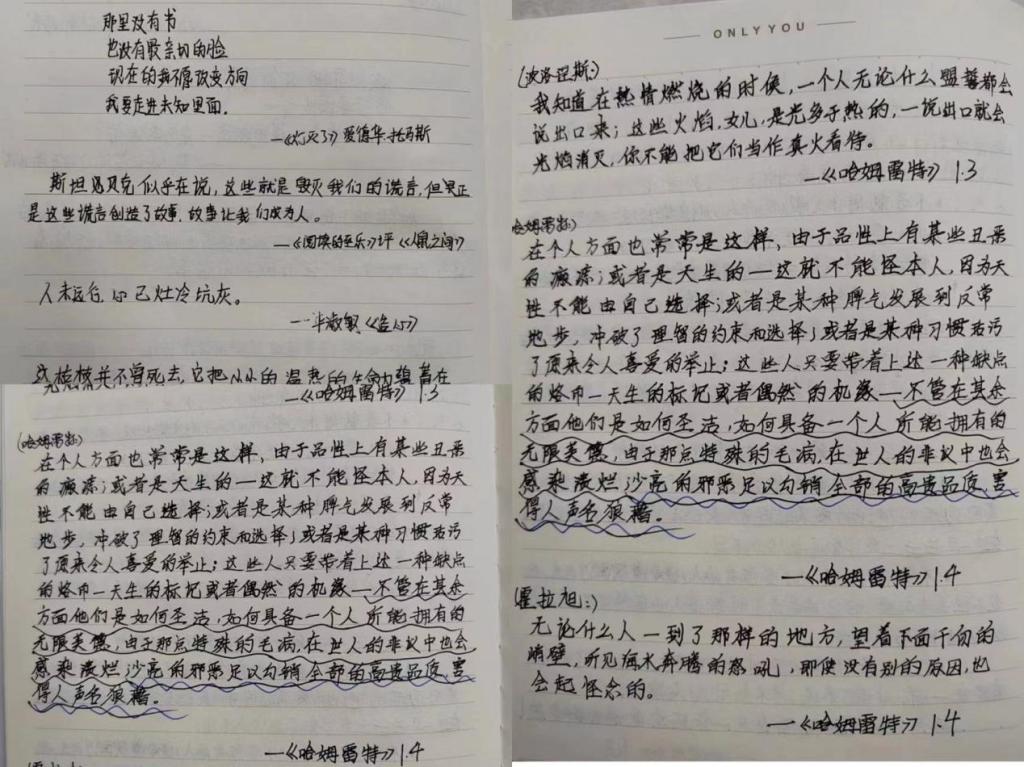 那里没有书
也没有最亲切的脸
现在的我不愿改变方向
我要走进未知里面。
—《灯灭了》爱德华·托马斯
斯坦纳贝克似乎在说，这些就是毁灭我们的谎言，但正
是这些谎言创造了故事，故事让我们成为人。
—《阅读的至乐》评《人鼠之间》
人未远行，心已灶冷坑灰。
——毕淑敏《造心》
并不曾死去，它把小小的温热的生命力
—《哈姆雷特》1.3
(哈姆雷特:)
在个人方面也常常是这样，由于品性上有某些丑恶
的瘢痣；或者是天生的—这就不能怪本人，因为天
性不能由自己选择；或者是某种脾气发展到反常
地步，冲破了理智的约束和选择；或者是某种习惯玷污
了原来令人喜爱的举止；这些人只要带着上述一种缺点
的烙印—天生的标记或者偶然的机缘—不管在其余
方面他们是如何圣洁，如何具备一个人所能拥有的
无限美德，由于那点特殊的毛病，在世人的非议中也会
感染溃烂，少亮的邪恶足以勾销全部的高贵品质，害
得人声名狼藉。
—《哈姆雷特》1.4
ONLY YOU
(波洛涅斯:)
我知道在热情燃烧的时候，一个人无论什么盟誓都会
说出口来；这些火焰，女儿，是光多于热的，一说出口就会
光焰消灭，你不能把它们当作真火看待。
—《哈姆雷特》1.3
哈姆雷特:)
在个人方面也常常是这样，由于品性上有某些丑恶
的瘢痣；或者是天生的—这就不能怪本人，因为天
性不能由自己选择；或者是某种脾气发展到反常
地步，冲破了理智的约束和选择；或者是某种习惯玷污
了原来令人喜爱的举止；这些人只要带着上述一种缺点
的烙印—天生的标记或者偶然的机缘—不管在其余
方面他们是如何圣洁，如何具备一个人所能拥有的
无限美德，由于那点特殊的毛病，在世人的非议中也会
感染溃烂，少亮的邪恶足以勾销全部的高贵品质，害
得人声名狼藉。
—《哈姆雷特》1.4
(霍拉旭:)
无论什么人一到了那样的地方，望着下面千仞的
峭壁，听见海水奔腾的怒吼，即使没有别的原因，也
会起怪念的。
—《哈姆雷特》1.4